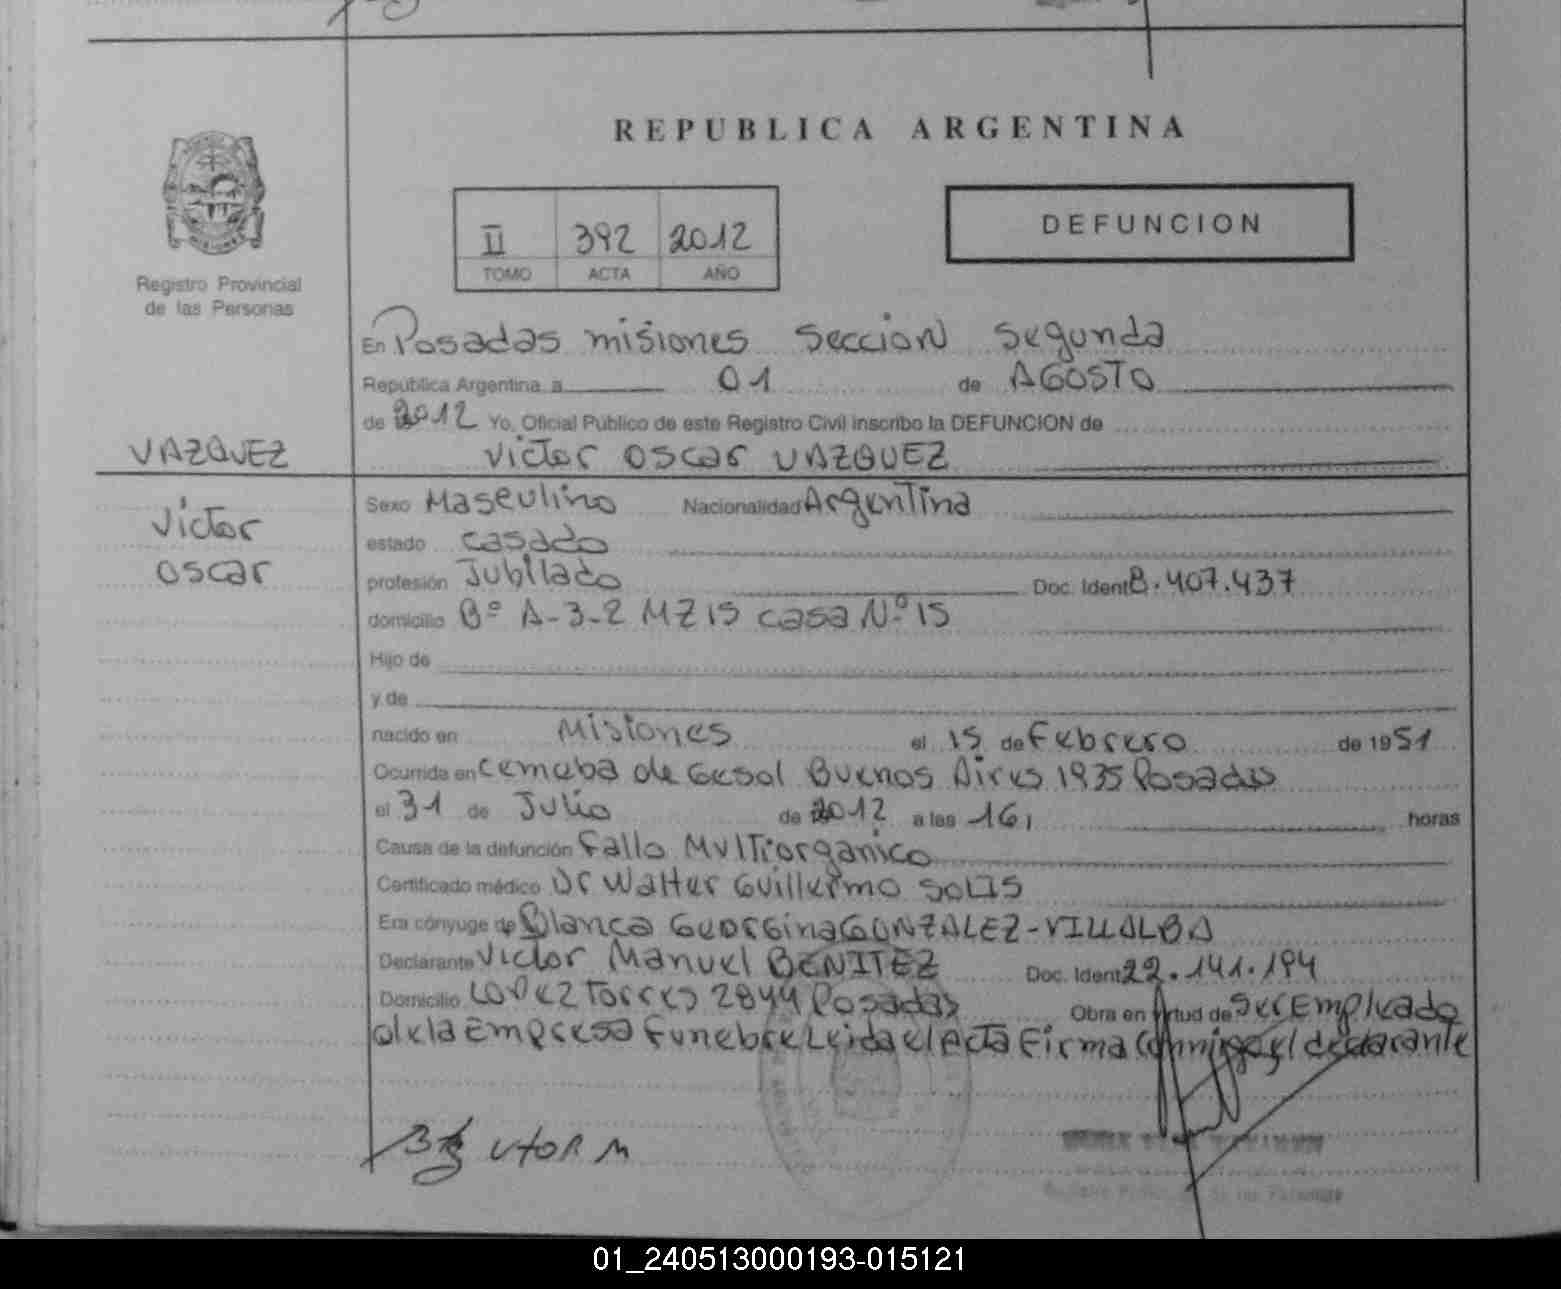 REPUBLICA ARGENTINA
Registro Provincial
de las Personas
II 392 2012
TOMO ACTA AÑO
DEFUNCION
En Posadas misiones seccion segunda
República Argentina a 01 de AGOSTO
de 2012 Yo, Oficial Público de este Registro Civil inscribo la DEFUNCION de
VAZQUEZ
Victor Oscar VAZQUEZ
Victor
Oscar
Sexo Masculino Nacionalidad Argentina
estado casado
profesión Jubilado Doc. Ident 8.407.437
domicilio Bº A-3-2 MZ 15 casa N.º 15
Hijo de
y de
nacido en Misiones el 15 de Febrero de 1951
Ocurrida en cemeba de Gesal Buenos Aires 1935 Posadas
el 31 de Julio de 2012 a las 16, horas
Causa de la defunción Fallo Multiorganico
Certificado médico Dr Walter Guillermo SOLIS
Era cónyuge de Blanca Georgina GONZALEZ-VILLALBA
Declarante Victor Manuel BENITEZ Doc. Ident 22.141.194
Domicilio Lopez Torres 2844 Posadas Obra en virtud de ser Empleado
de la Empresa Funebre Leida el Acta Firma Conmigo el declarante
01_240513000193-015121